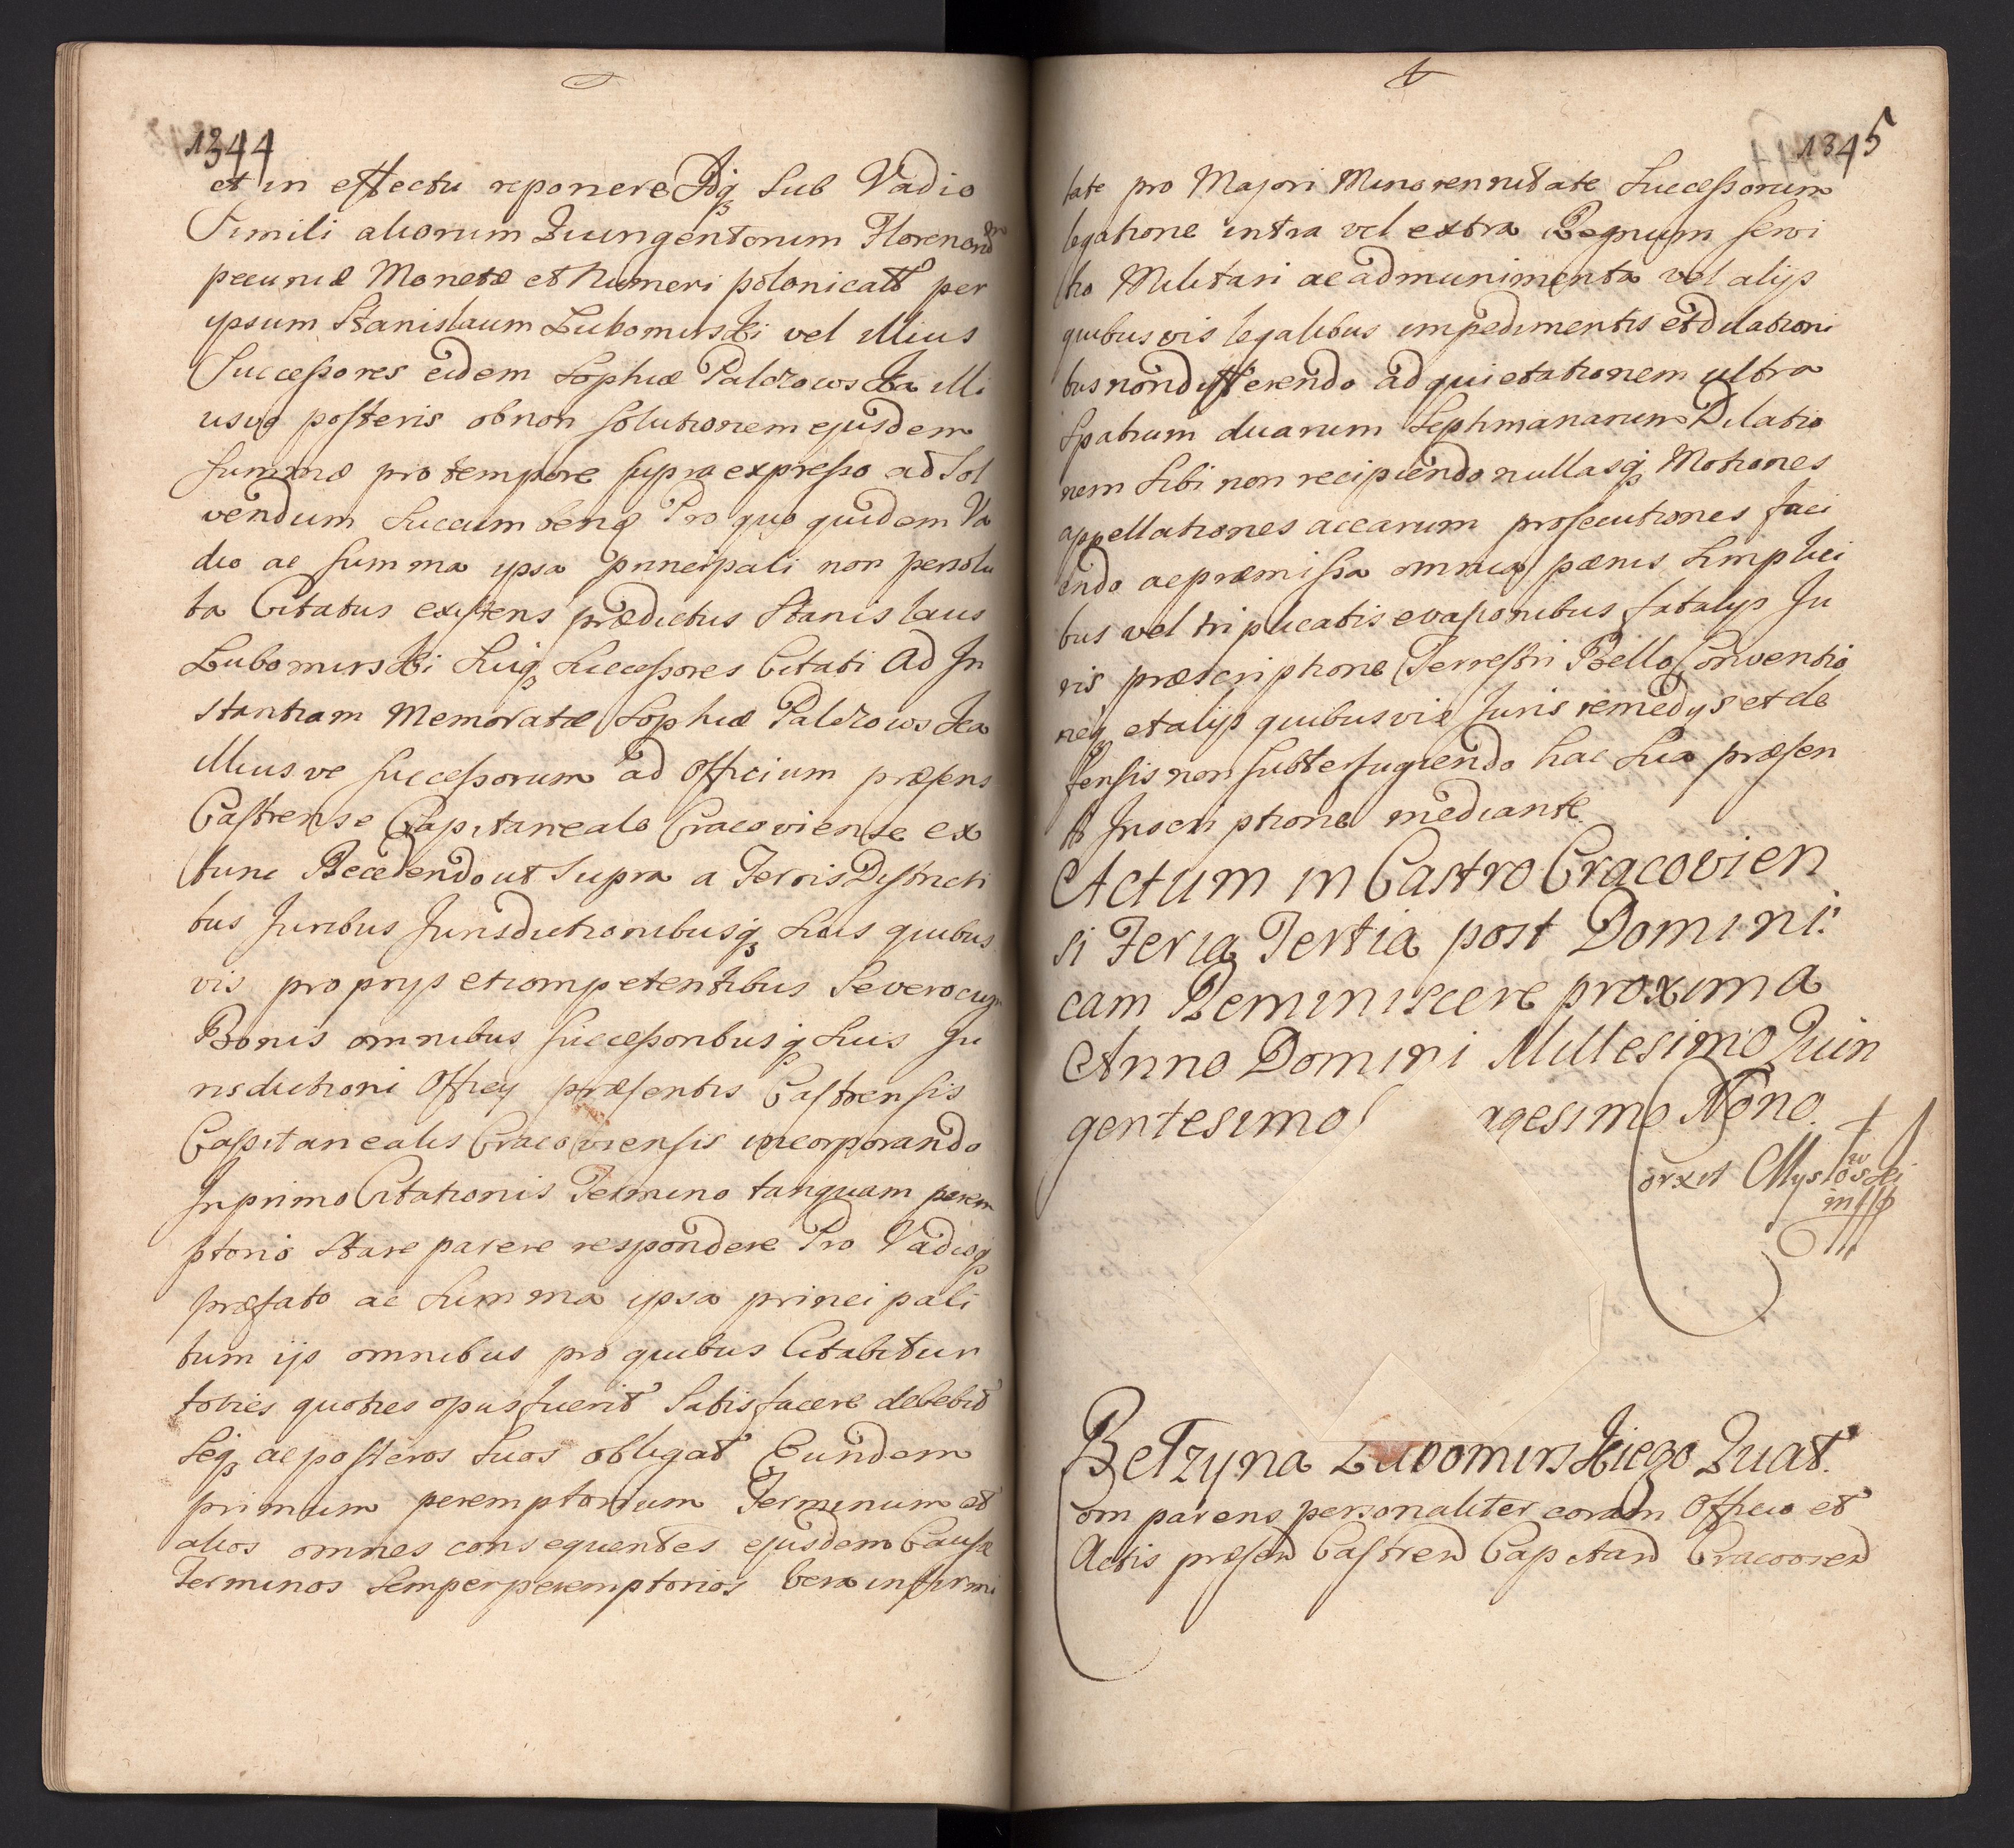 1344
et in effectu reponere Idq3 Sub Vadio
Simili aliorum Quingentorum Florenorum
pecuniæ Monetæ et Numeri polonicat per
ipsum Stanislaum Lubomirski vel illius
Successores eidem Sophiæ Palczowska illi
usve posteris ob non Solutionem ejusdem
Summæ pro tempore supra expresso ad Sol
vendum Succumbend Pro quo quidem Va
dio ac Summa ipsa principali non persolu
ta Citatus existens prædictus Stanislaus
Lubomirski Suiq3 Successores Citati Ad In
stantiam Memoratæ Sophiæ Palczowska
Illiusve Successorum ad officium præsens
Castrense Capitaneale Cracoviense ex
tunc Recedendo ut Supra a Terris Districti
bus Juribus Jurisdictionibusq3 Suis quibus
vis proprijs et competentibus Se vero cum
Bonis omnibus Successoribusq3 Suis Ju
risdictioni Officij præsentis Castrensis
Capitanealis Cracoviensis incorporando
In primo Citationis Termino tanquam perem
ptorio Stare parere respondere Pro Vadioq3
præfato ac Summa ipsa principali
tum ijs omnibus pro quibus Citabitur
toties quoties opus fuerit Satisfacere debebit
Seq3 ac posteros Suos obligat Eundem
primum peremptorium Terminum et
alios omnes consequentes ejusdem Causæ
Terminos Semper peremptorios vera infirmi
1345
tate pro Majori Minorennitate Successorum
legatione intra vel extra Regnum Servi
tio Militari ac ad munimenta vel alijs
quibusvis legalibus impedimentis et dilationi
bus non differendo ad quietationem ultra
Spatium duarum Septimanarum Dilatio
nem Sibi non recipiendo nullasq3 Motiones
appellationes ac earum prosecutiones faci
endo ac præmissa omnia pænis Simplici
bus vel triplicatis evasionibus fatalijs Ju
ris præscriptione Terrestri Bello Conventio
neq3 et alijs quibusvis Juris remedijs et de
fensis non subterfugiendo hac Sua præsen
ti Inscriptione mediante
Actum in Castro Cracovien
si Feria Tertia post Domini:
cam Reminiscere proxima
Anno Domini Millesimo Quin
gentesimo agesimo Nono.
orxit Mysłowski
mpp
Betzyna Lubomirskiego Quat.
Com parens personaliter coram Officio et
Actis præsen Castren Capitan Cracovien